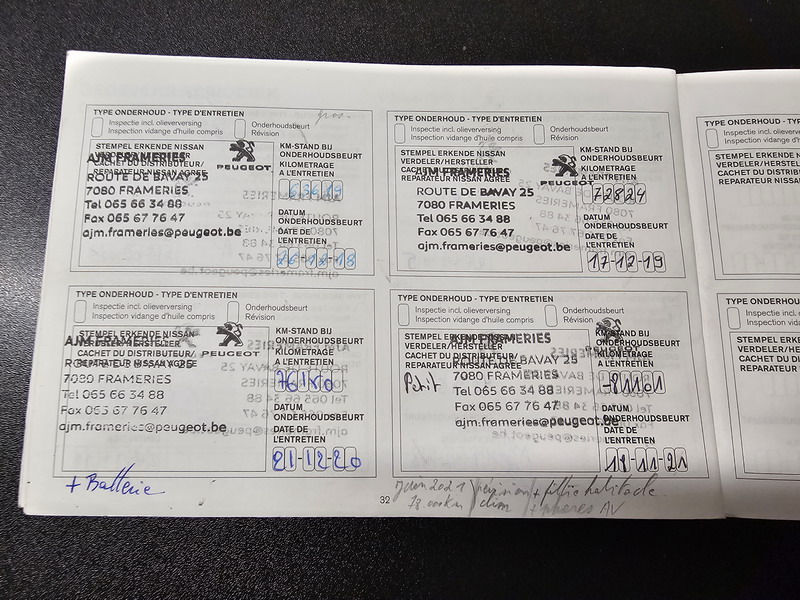 TYPE ONDERHOUD - TYPE D'ENTRETIEN
Inspectie incl. olieverversing
Inspection vidange d'huile compris
Onderhoudsbeurt
Révision
STEMPEL ERKENDE NISSAN
CACHET DU DISTRIBUTEUR/
REPARATEUR NISSAN AGREE
AJM FRAMERIES
ROUTE DE BAVAY 25
7080 FRAMERIES
Tel 065 66 34 88
Fax 065 67 76 47
ajm.frameries@peugeot.be
PEUGEOT
KM-STAND BIJ
ONDERHOUDSBEURT
KILOMETRAGE
A L'ENTRETIEN
DATUM
ONDERHOUDSBEURT
DATE DE
L'ENTRETIEN
TYPE ONDERHOUD - TYPE D'ENTRETIEN
Inspectie incl. olieverversing
Inspection vidange d'huile compris
Onderhoudsbeurt
Révision
STEMPEL ERKENDE NISSAN
VERDELER/HERSTELLER-
CACHET DU DISTRIBUTEUR/
REPARATEUR NISSAN AGREE
AJM FRAMERIES
ROUTE DE BAVAY 25
7080 FRAMERIES
Tel 065 66 34 88
Fax 065 67 76 47
ajm.frameries@peugeot.be
PEUGEOT
KM-STAND BIJ
ONDERHOUDSBEURT
KILOMETRAGE
A L'ENTRETIEN
72824
DATUM
ONDERHOUDSBEURT
DATE DE
L'ENTRETIEN
17-12-19
TYPE ONDERHOUD - TYPE D'ENTRETIEN
Inspectie incl. olieverversing
Inspection vidange d'huile compris
Onderhoudsbeurt
Révision
STEMPEL ERKENDE NISSAN
VERDELER/HERSTELLER-
CACHET DU DISTRIBUTEUR/
REPARATEUR NISSAN AGREE
AJM FRAMERIES
7080 FRAMERIES
Tel 065 66 34 88
Fax 065 67 76 47
ajm.frameries@peugeot.be
PEUGEOT
KM-STAND BIJ
ONDERHOUDSBEURT
KILOMETRAGE
A L'ENTRETIEN
DATUM
ONDERHOUDSBEURT
DATE DE
L'ENTRETIEN
21-12-20
+ Batterie
TYPE ONDERHOUD - TYPE D'ENTRETIEN
Inspectie incl. olieverversing
Inspection vidange d'huile compris
Onderhoudsbeurt
Révision
VERDELER/HERSTELLER-
CACHET DU DISTRIBUTEUR/
REPARATEUR NISSAN AGREE
AJM FRAMERIES
ROUTE DE BAVAY 25
7080 FRAMERIES
Tel 065 66 34 88
Fax 065 67 76 47
ajm.frameries@peugeot.be
Petit
KM-STAND BIJ
ONDERHOUDSBEURT
KILOMETRAGE
A L'ENTRETIEN
81101
DATUM
ONDERHOUDSBEURT
DATE DE
L'ENTRETIEN
18-11-21
2021 révision + filtre habitacle
clim AV
32
TYPE
STEMPEL ERKE
VERDELER/HE
CACHET DU DIS
REPARATEUR N
TYPE ONDER
STEMPEL ERK
VERDELER/HE
CACHET DU D
REPARATEUR